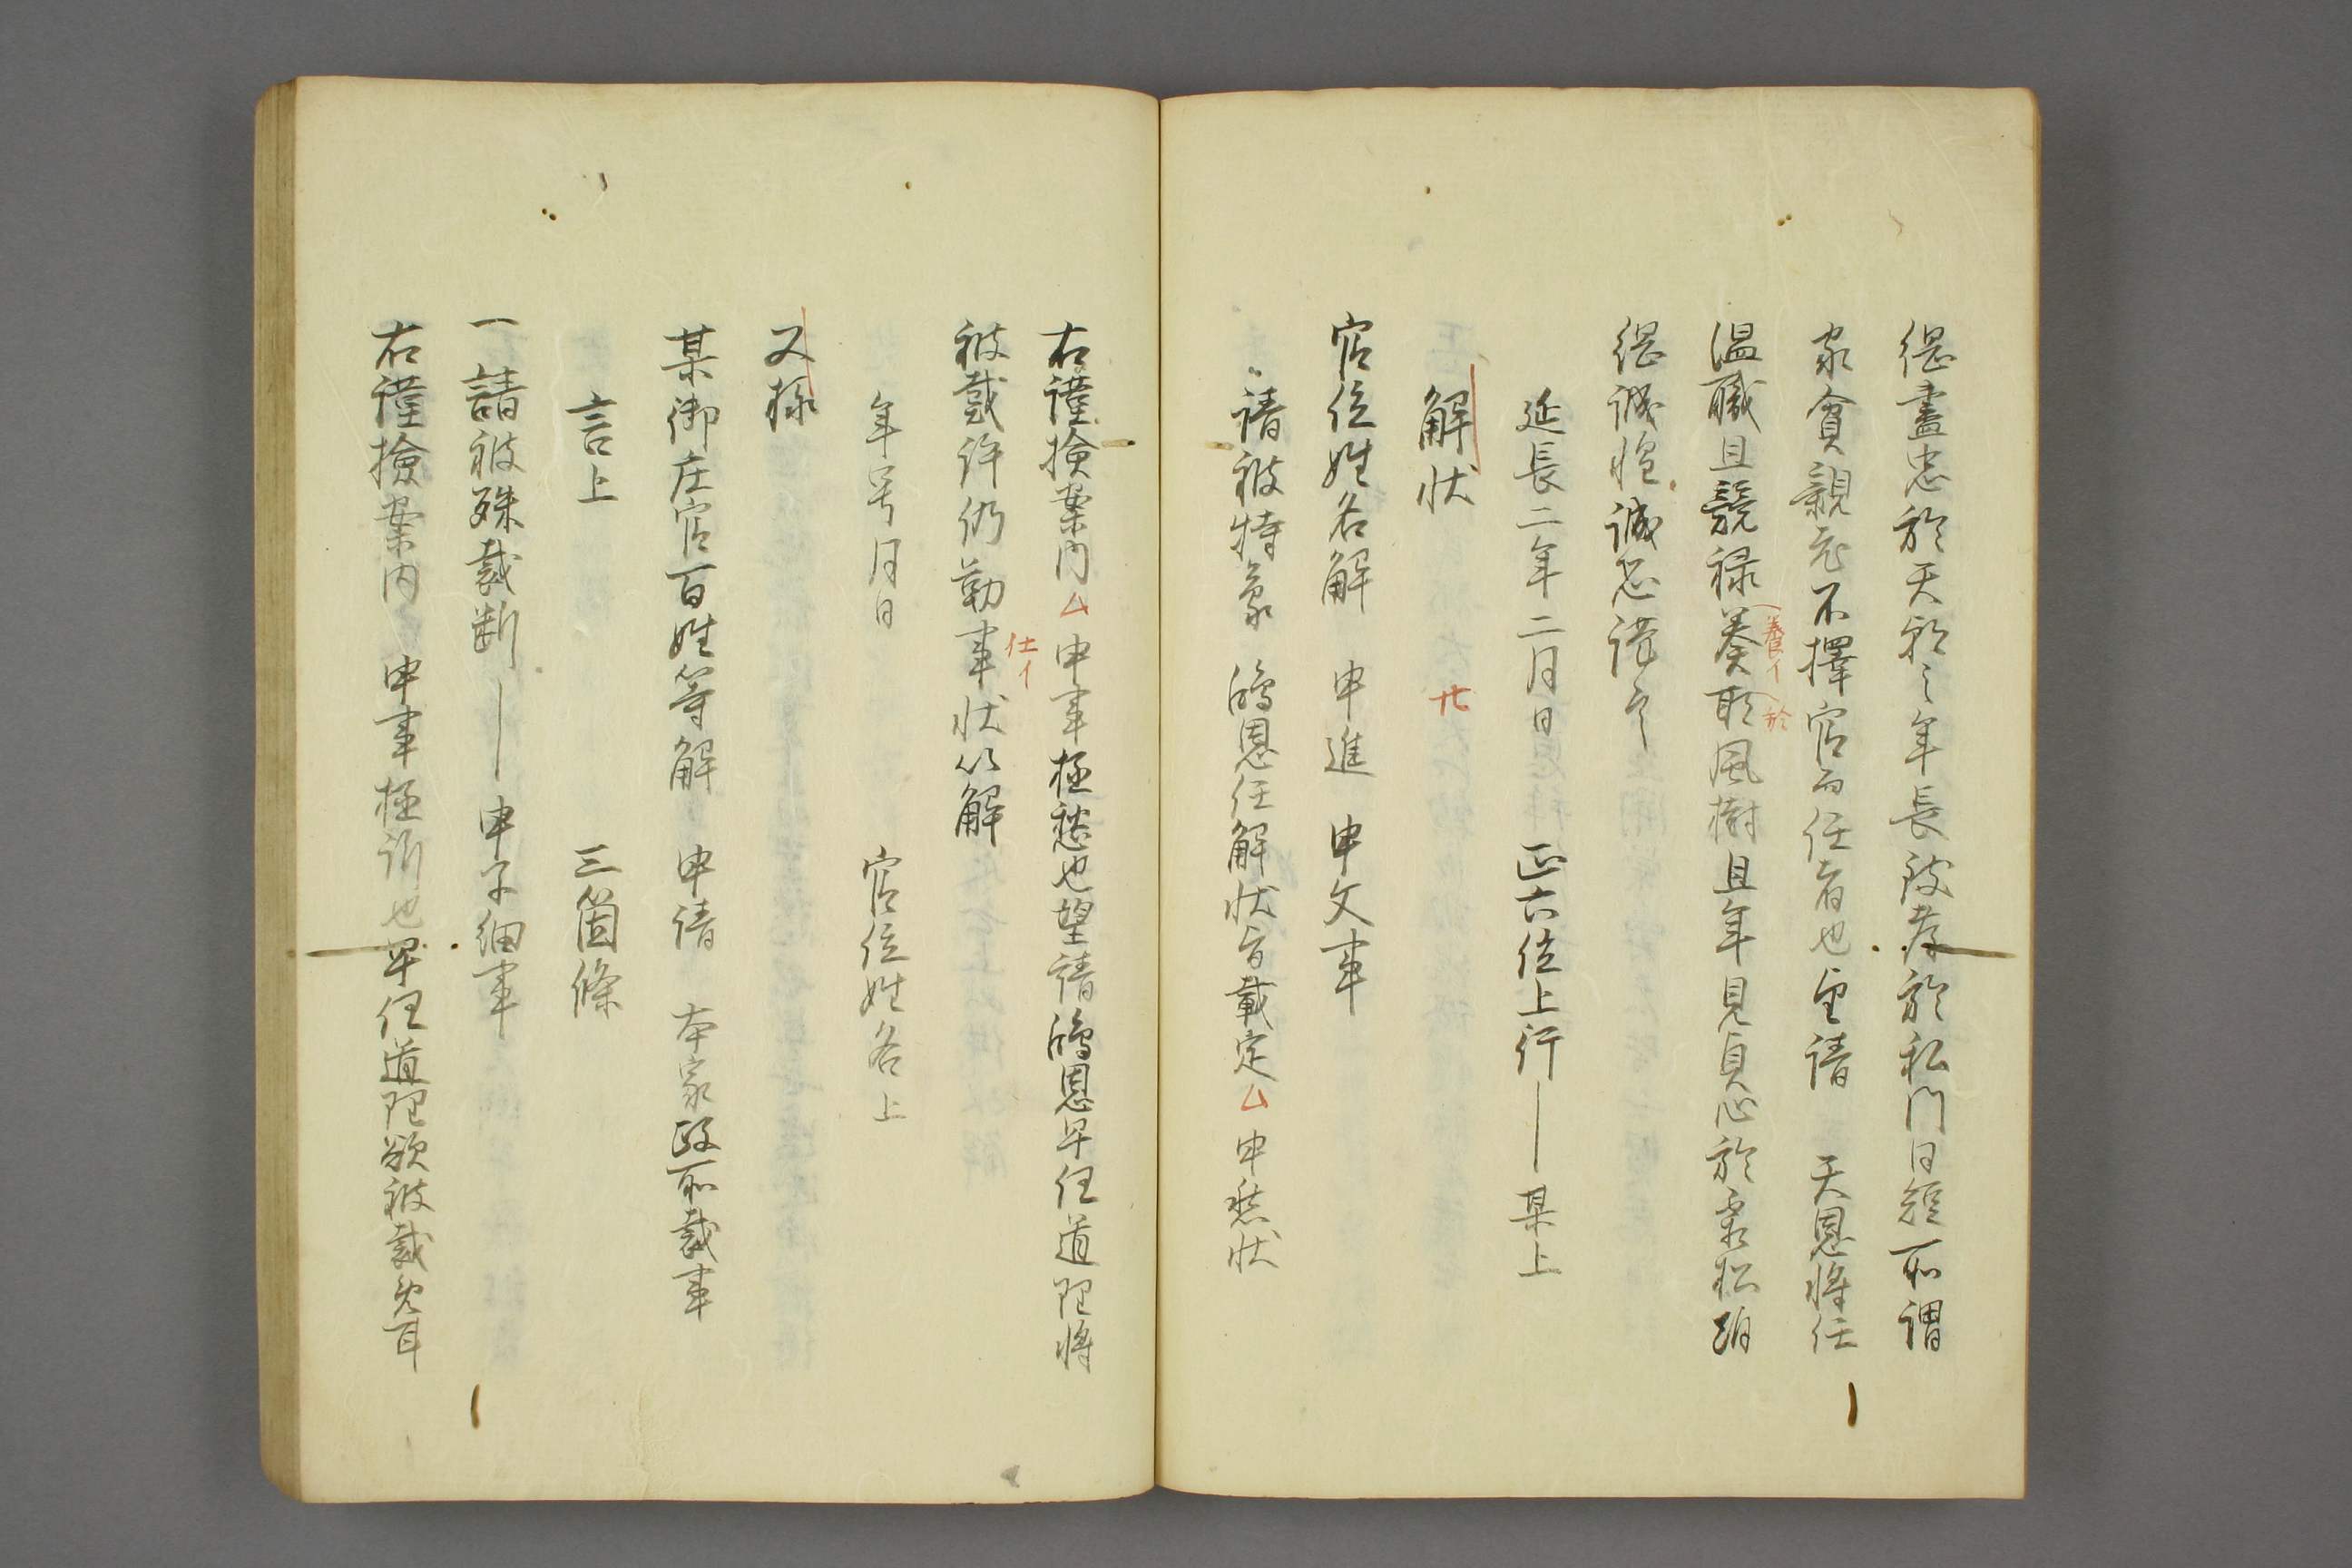 縄盡忠於天祁之年長致孝於私門日短所謂
家貧親老不擇官而任者也望請 天恩將任
温職且競禄養於風樹且年見貞心於寒松蹈
縄誠惶誠恐謹言
延長二年二月日 正六位上行―某上
解状
官位姓名解 申進 申文事
請被特蒙 鴻恩任解状旨載定ム申愁状
右謹撿案内ム申事極愁也望請鴻恩早任道理將
被裁許仍勒事状以解
仕イ
年号月日 官位姓名上
又様
某御庄官百姓等解 申請 本家政所裁事
言上 三箇條
一請被殊裁断―申子細事
右謹撿案内 申事極訴也早任道理欲被裁免耳